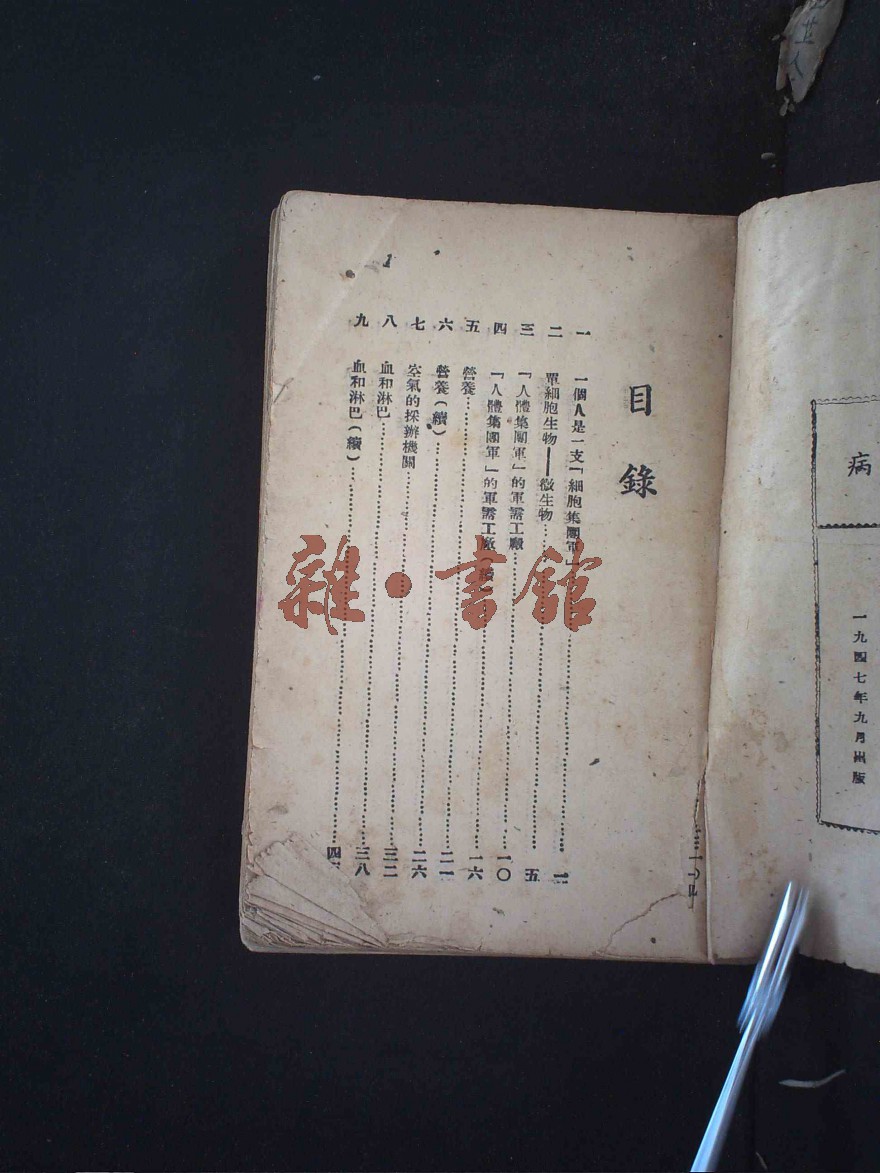 病
一九四七年九月出版
目錄
一 一個人是一支「細胞集團軍」
二 單細胞生物——微生物 五
三 「人體集團軍」的軍需工廠 一〇
四 「人體集團軍」的軍需工廠（續） 一六
五 營養 二一
六 營養（續） 二六
七 空氣的採辦機關 三二
八 血和淋巴 三八
九 血和淋巴（續）
1
雜·書館